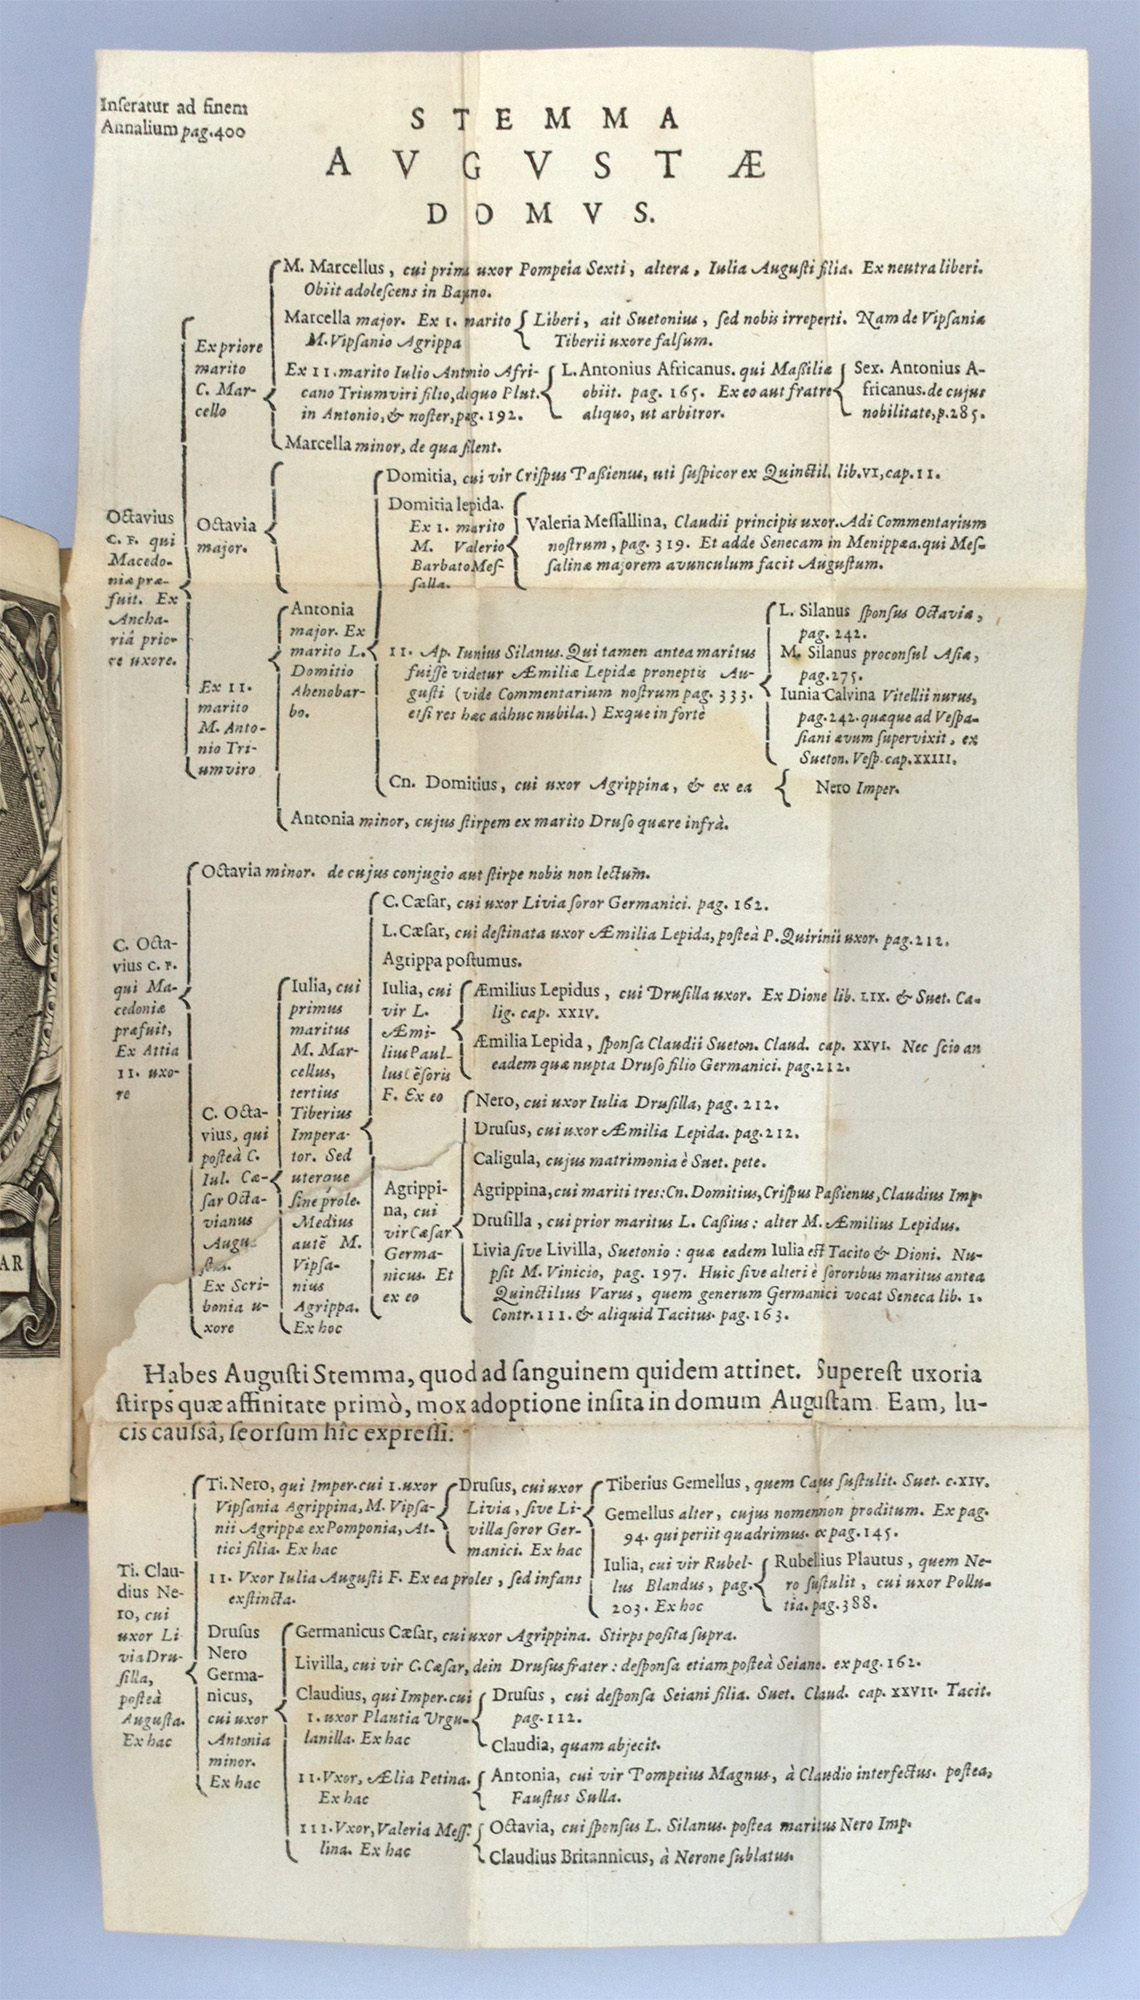 Inſeratur ad finem
Annalium pag. 400
STEMMA
AVGVSTÆ
DOMVS.
M. Marcellus, cui prima uxor Pompeia Sexti, altera, Iulia Auguſti filia. Ex neutra liberi.
Obiit adoleſcens in Bajano.
Marcella major. Ex I. marito
M. Vipſanio Agrippa
Liberi, ait Suetonius, ſed nobis irreperti. Nam de Vipſania
Tiberii uxore falſum.
Ex priore
marito
C. Mar-
cello
Ex II. marito Iulio Antonio Afri-
cano Triumviri filio, de quo Plut.
in Antonio, & noſter, pag. 192.
L. Antonius Africanus. qui Maßiliæ
obiit. pag. 165. Ex eo aut fratre
aliquo, ut arbitror.
Sex. Antonius A-
fricanus. de cujus
nobilitate, p. 285.
Marcella minor, de qua ſilent.
Octavius
C. F. qui
Macedo-
niæ præ-
fuit. Ex
Ancha-
riâ prio-
re uxore.
Octavia
major.
Domitia, cui vir Criſpus Paßienus, uti ſuſpicor ex Quinctil. lib. VI, cap. 11.
Domitia lepida.
Ex I. marito
M. Valerio
Barbato Meſ-
ſalla.
Valeria Meſſallina, Claudii principis uxor. Adi Commentarium
noſtrum, pag. 319. Et adde Senecam in Menippæa. qui Meſ-
ſalinæ majorem avunculum facit Auguſtum.
Ex II.
marito
M. Anto-
nio Tri-
umviro
Antonia
major. Ex
marito L.
Domitio
Ahenobar-
bo.
II. Ap. Iunius Silanus. Qui tamen antea maritus
fuiſſe videtur Æmiliæ Lepidæ proneptis Au-
guſti (vide Commentarium noſtrum pag. 333.
etſi res hæc adhuc nubila.) Exque in forte
L. Silanus ſponſus Octaviæ,
pag. 242.
M. Silanus proconſul Aſiæ,
pag. 275.
Iunia Calvina Vitellii nurus,
pag. 242. quæque ad Veſpa-
ſiani ævum ſupervixit, ex
Sueton. Veſp. cap. XXIII.
Cn. Domitius, cui uxor Agrippina, & ex ea
Nero Imper.
Antonia minor, cujus ſtirpem ex marito Druſo quære infrà.
Octavia minor. de cujus conjugio aut ſtirpe nobis non lectum.
C. Octa-
vius C. F.
qui Ma-
cedoniæ
præfuit,
Ex Attia
II. uxo-
re
C. Octa-
vius, qui
poſteà C.
Iul. Cæ-
ſar Octa-
vianus
Augu-
ſtus.
Ex Scri-
bonia u-
xore
Iulia, cui
primus
maritus
M. Mar-
cellus,
tertius
Tiberius
Impera-
tor. Sed
uterque
ſine prole.
Medius
autē M.
Vipſa-
nius
Agrippa.
Ex hoc
C. Cæſar, cui uxor Livia ſoror Germanici. pag. 162.
L. Cæſar, cui deſtinata uxor Æmilia Lepida, poſteà P. Quirinii uxor. pag. 212.
Agrippa poſtumus.
Iulia, cui
vir L.
Æmi-
lius Paul-
lus Cēſoris
F. Ex eo
Æmilius Lepidus, cui Druſilla uxor. Ex Dione lib. LIX. & Suet. Ca-
lig. cap. XXIV.
Æmilia Lepida, ſponſa Claudii Sueton. Claud. cap. XXVI. Nec ſcio an
eadem quæ nupta Druſo filio Germanici. pag. 212.
Agrippi-
na, cui
vir Cæſar
Germa-
nicus. Et
ex eo
Nero, cui uxor Iulia Druſilla, pag. 212.
Druſus, cui uxor Æmilia Lepida. pag. 212.
Caligula, cujus matrimonia è Suet. pete.
Agrippina, cui mariti tres: Cn. Domitius, Criſpus Paßienus, Claudius Imp.
Druſilla, cui prior maritus L. Caßius: alter M. Æmilius Lepidus.
Livia ſive Livilla, Suetonio: quæ eadem Iulia eſt Tacito & Dioni. Nu-
pſit M. Vinicio, pag. 197. Huic ſive alteri è ſororibus maritus antea
Quinctilius Varus, quem generum Germanici vocat Seneca lib. I.
Contr. III. & aliquid Tacitus. pag. 163.
Habes Auguſti Stemma, quod ad ſanguinem quidem attinet. Supereſt uxoria
ſtirps quæ affinitate primò, mox adoptione inſita in domum Auguſtam. Eam, lu-
cis cauſſâ, ſeorſum hîc expreſſi.
Ti. Clau-
dius Ne-
ro, cui
uxor Li-
via Dru-
ſilla,
poſteà
Auguſta.
Ex hac
Ti. Nero, qui Imper. cui I. uxor
Vipſania Agrippina, M. Vipſa-
nii Agrippæ ex Pomponia, At-
tici filia. Ex hac
Druſus, cui uxor
Livia, ſive Li-
villa ſoror Ger-
manici. Ex hac
Tiberius Gemellus, quem Cajus ſuſtulit. Suet. c. XIV.
Gemellus alter, cujus nomen non proditum. Ex pag.
94. qui periit quadrimus. ex pag. 145.
Iulia, cui vir Rubel-
lus Blandus, pag.
203. Ex hoc
Rubellius Plautus, quem Ne-
ro ſuſtulit, cui uxor Pollu-
tia. pag. 388.
II. Vxor Iulia Auguſti F. Ex ea proles, ſed infans
exſtincta.
Druſus
Nero
Germa-
nicus,
cui uxor
Antonia
minor.
Ex hac
Germanicus Cæſar, cui uxor Agrippina. Stirps poſita ſupra.
Livilla, cui vir C. Cæſar, dein Druſus frater: deſponſa etiam poſteà Seiano. ex pag. 162.
Claudius, qui Imper. cui
I. uxor Plautia Urgu-
lanilla. Ex hac
Druſus, cui deſponſa Seiani filia. Suet. Claud. cap. XXVII. Tacit.
pag. 112.
Claudia, quam abjecit.
II. Vxor, Ælia Petina.
Ex hac
Antonia, cui vir Pompeius Magnus, à Claudio interfectus. poſtea,
Fauſtus Sulla.
III. Vxor, Valeria Meſſ-
lina. Ex hac
Octavia, cui ſponſus L. Silanus. poſtea maritus Nero Imp.
Claudius Britannicus, à Nerone ſublatus.
LIVIA
AR